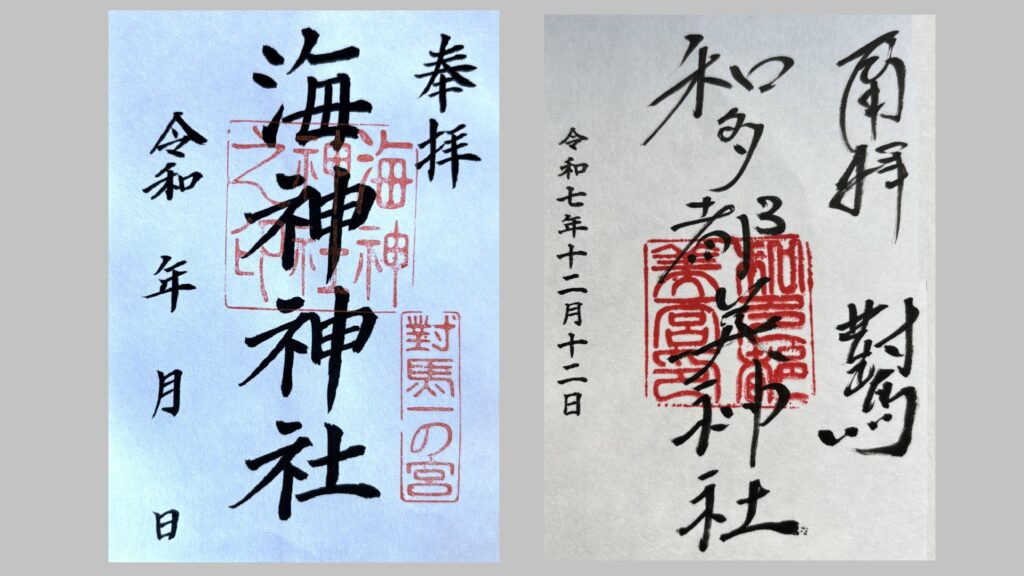 奉拝
海神神社
海神
神社
之印
對馬一の宮
令和 年 月 日
拜 對馬
和多都美神社
令和七年十二月十二日